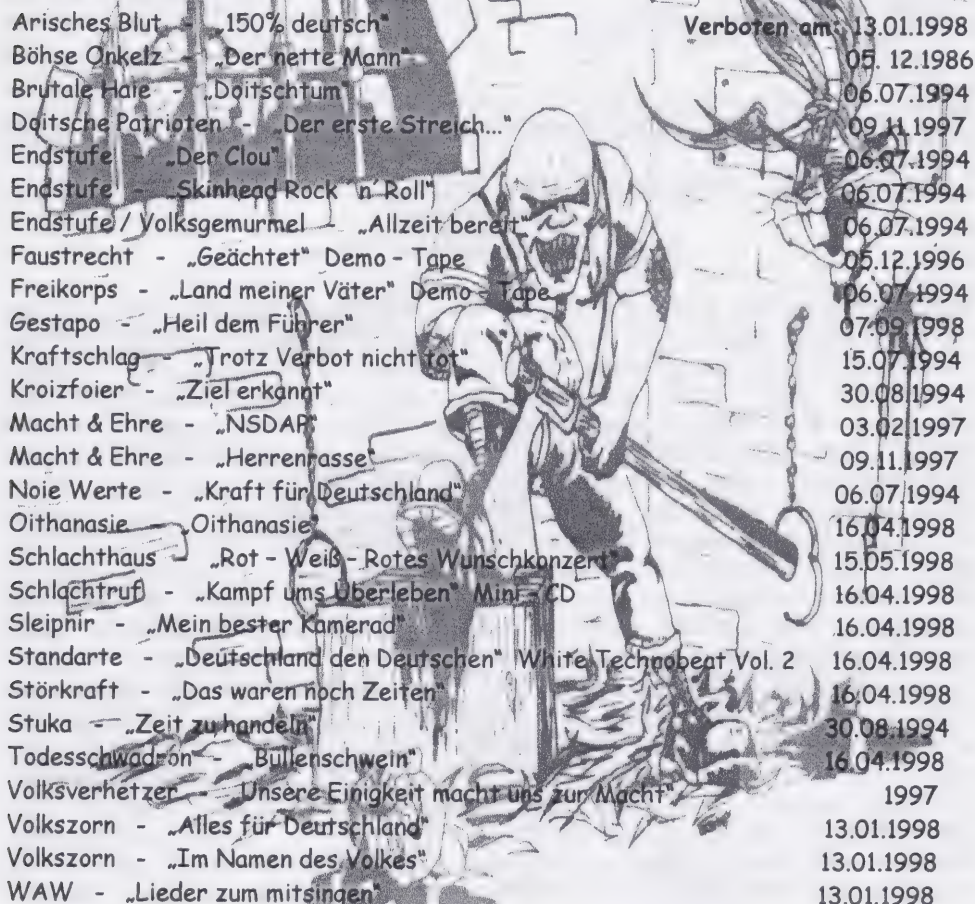 Arisches Blut - „150% deutsch“ Verboten am: 13.01.1998
Böhse Onkelz - „Der nette Mann“ 05. 12.1986
Brutale Haie - „Doitschtum“ 06.07.1994
Doitsche Patrioten - „Der erste Streich...“ 09.11.1997
Endstufe - „Der Clou“ 06.07.1994
Endstufe - „Skinhead Rock 'n' Roll“ 06.07.1994
Endstufe / Volksgemurmel - „Allzeit bereit“ 06.07.1994
Faustrecht - „Geächtet“ Demo - Tape 05.12.1996
Freikorps - „Land meiner Väter“ Demo - Tape 06.07.1994
Gestapo - „Heil dem Führer“ 07.09.1998
Kraftschlag - „Trotz Verbot nicht tot“ 15.07.1994
Kroizfoier - „Ziel erkannt“ 30.08.1994
Macht & Ehre - „NSDAP“ 03.02.1997
Macht & Ehre - „Herrenrasse“ 09.11.1997
Noie Werte - „Kraft für Deutschland“ 06.07.1994
Oithanasie - „Oithanasie“ 16.04.1998
Schlachthaus - „Rot - Weiß - Rotes Wunschkonzert“ 15.05.1998
Schlachtruf - „Kampf ums Überleben“ Mini - CD 16.04.1998
Sleipnir - „Mein bester Kamerad“ 16.04.1998
Standarte - „Deutschland den Deutschen“ White Technobeat Vol. 2 16.04.1998
Störkraft - „Das waren noch Zeiten“ 16.04.1998
Stuka - „Zeit zu handeln“ 30.08.1994
Todesschwadron - „Bullenschwein“ 16.04.1998
Volksverhetzer - „Unsere Einigkeit macht uns zur Macht“ 1997
Volkszorn - „Alles für Deutschland“ 13.01.1998
Volkszorn - „Im Namen des Volkes“ 13.01.1998
WAW - „Lieder zum mitsingen“ 13.01.1998